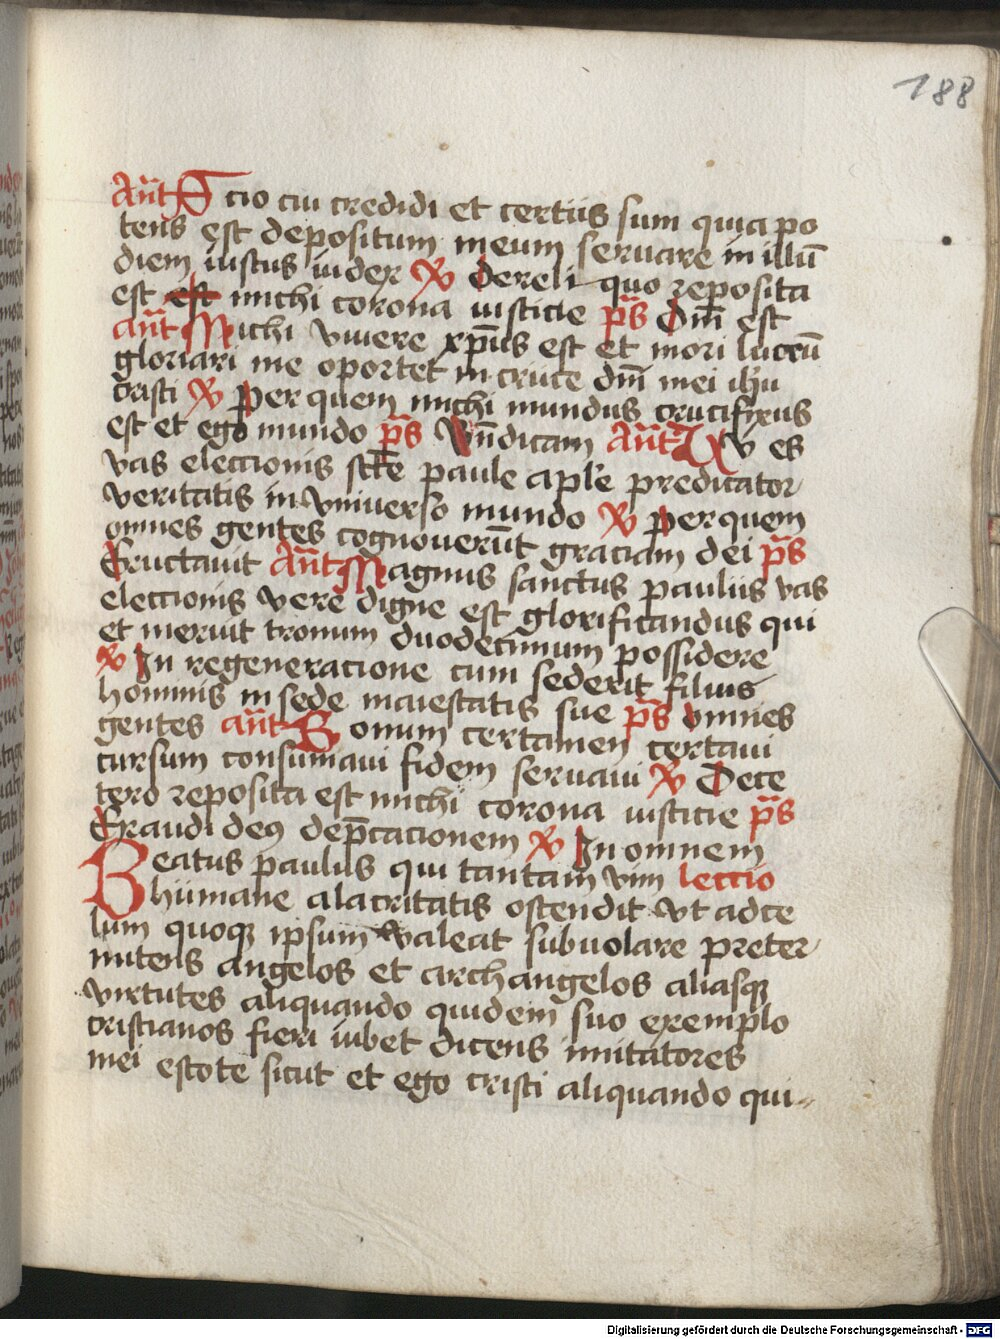 188
Ant̄ Scio cui credidi et certus sum quia po
tens est depositum meum servare in illū
diem iustus iudex ℣ De reli quo reposita
est est michi corona iusticie ps̄ Dn̄i est
ant̄ Michi vivere xp̄us est et mori lucrū
gloriari me oportet in cruce dn̄i mei ihū
cristi ℣ Per quem michi mundus crucifixus
est et ego mundo ps̄ Bn̄dicam Ant̄ Tu es
vas eleccionis sc̄te paule aple predicator
veritatis in vniuerso mundo ℣ Per quem
omnes gentes cognouerūt graciam dei ps̄
Eructauit Ant̄ Magnus sanctus paulus vas
eleccionis vere digne est glorificandus qui
et meruit tronum duodecimum possidere
℣ In regeneracione cum sederit filius
hominis in sede maiestatis sue ps̄ Omnes
gentes ant̄ Bonum certamen certaui
cursum consumaui fidem seruaui ℣ De ce
tero reposita est michi corona iusticie ps̄
Exaudi deus dep̄cacionem ℣ In omnem
Beatus paulus qui tantam vim leccio
humane alacritatis ostendit vt ad ce
lum quoqꝫ ipsum valeat subuolare preter
mitens angelos et archangelos aliasqꝫ
virtutes aliquando quidem suo exemplo
cristianos fieri iubet dicens imitatores
mei estote sicut et ego cristi aliquando qui
Digitalisierung gefördert durch die Deutsche Forschungsgemeinschaft - DFG